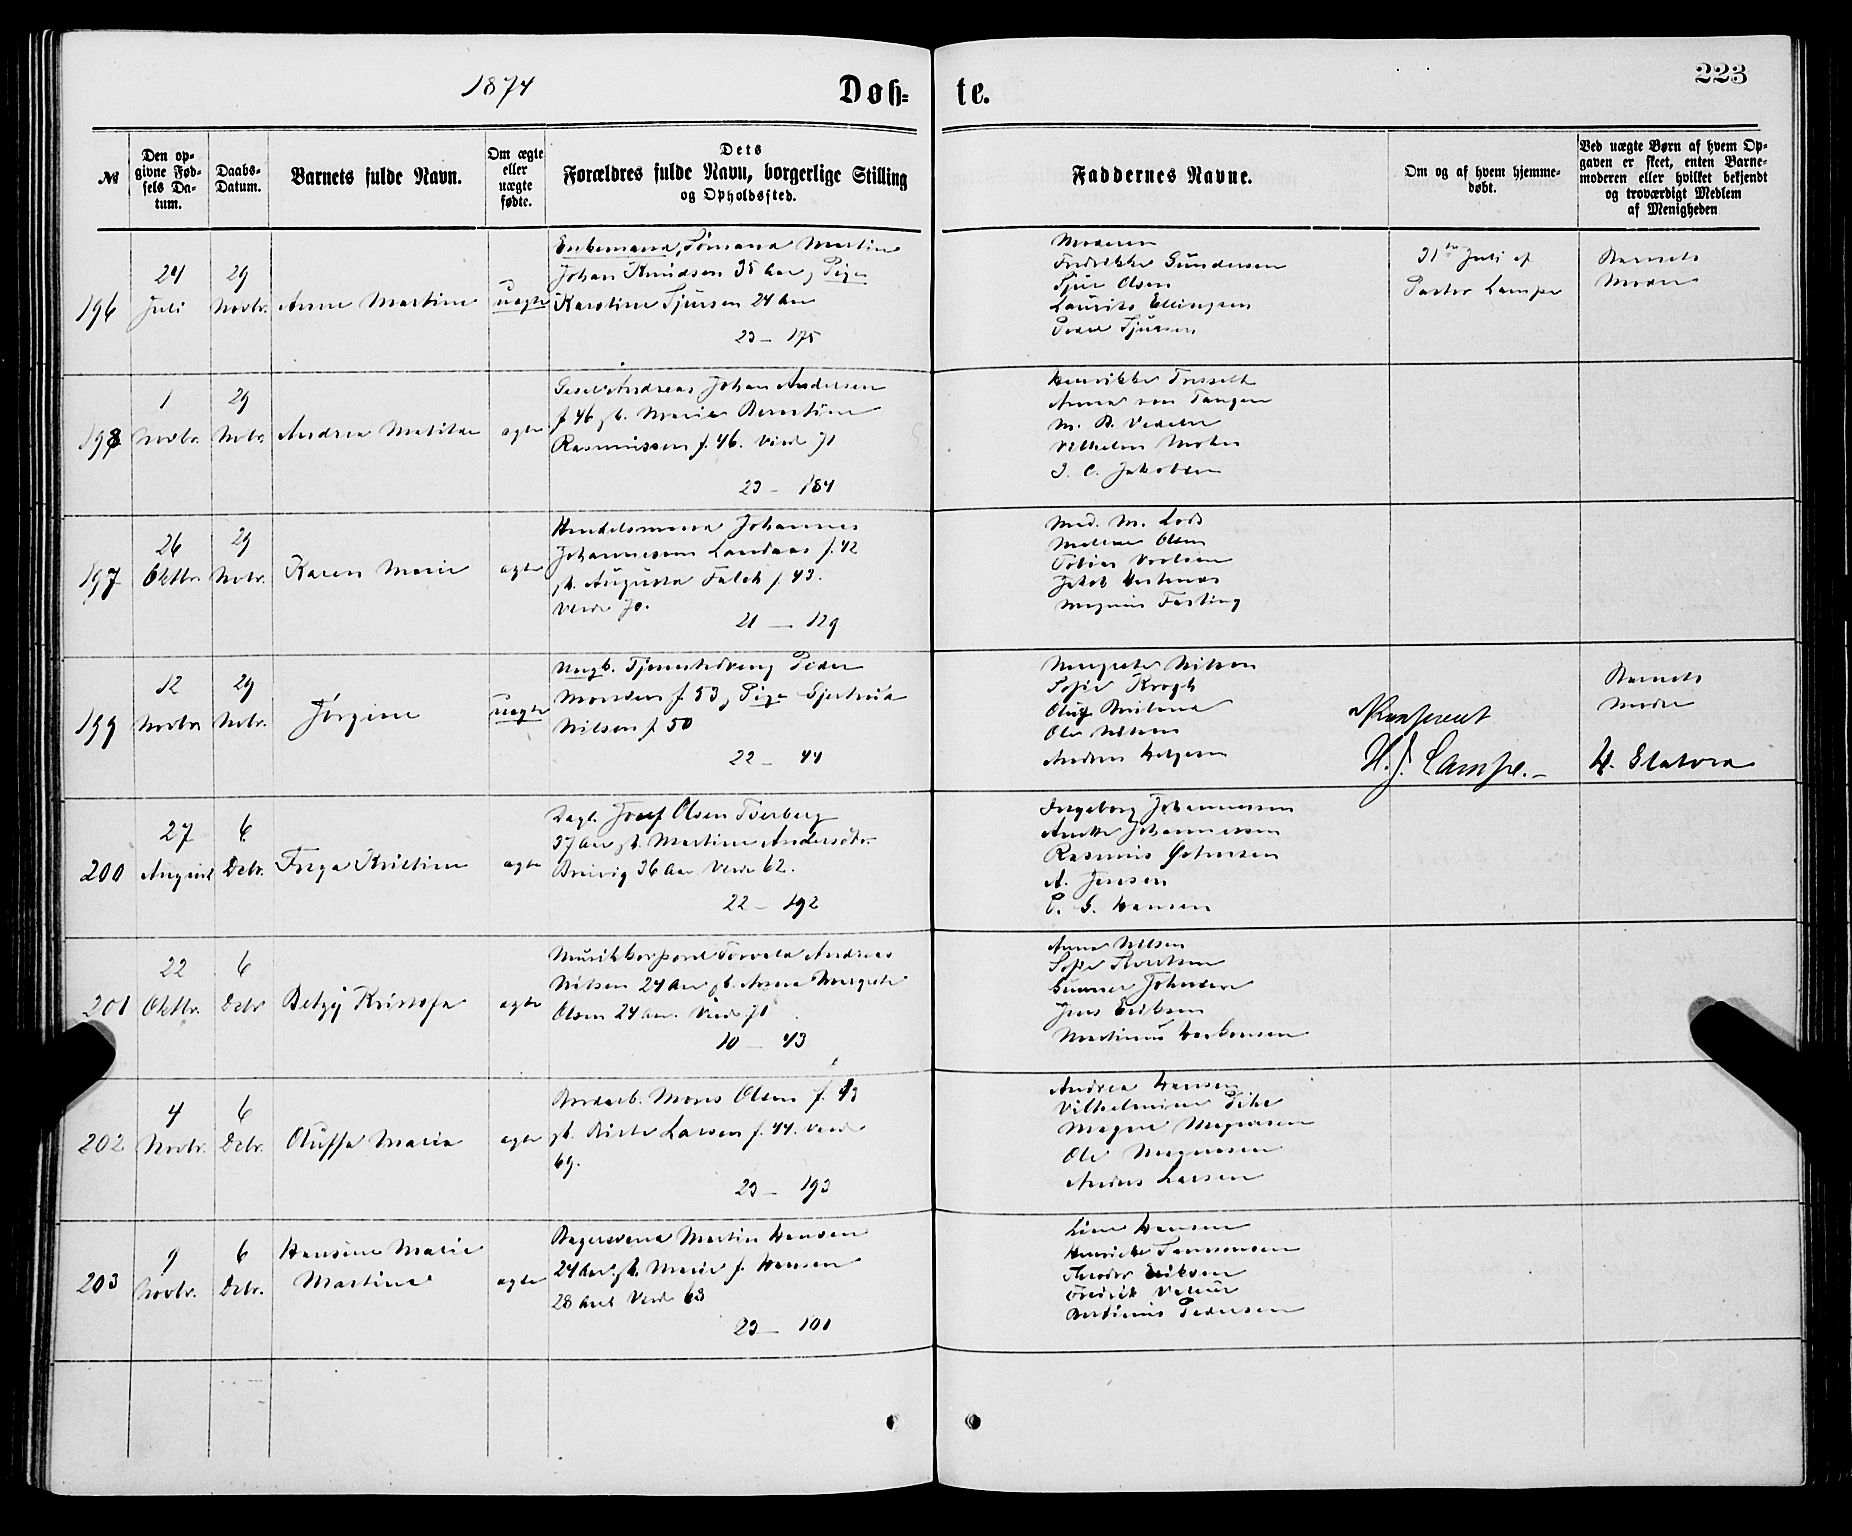 1874
Døb-
te.
223
№
Den op-
givne Fød-
sels Da-
tum.
Daabs-
Datum.
Barnets fulde Navn.
Om ægte
eller
uægte
fødte.
Dets
Forældres fulde Navn, borgerlige Stilling
og Opholdssted.
Faddernes Navne.
Om og af hvem hjemme-
døbt.
Ved uægte Børn af hvem Op-
gaven er skeet, enten Barne-
moderen eller hvilket bekjendt
og troværdigt Medlem
af Menigheden
196
24
Juli
29
Novbr.
Anne Martine
uægte
Enkemand, Tømand Martin
Johan Knudsen 35 Aar, Pige
Karoline Tjursen 24 Aar
23 - 175
Moderen
Fredrikke Gundersen
Tjur Olsen
Laurits Ellingsen
Peder Tjursen
31te Juli af
Pastor Lampe
Barnets
Moder
198
1
Novbr.
29
Nvbr.
Andrea Matilde
ægte
Andreas Johan Andersen
f 46, h. Marie Berntine
Rasmussen f. 46. Viede 71
23 - 184
Anna von Tangen
M. B. Vedeler
Vilhelm
J. C. Jakobsen
197
26
Oktbr.
29
Nvbr.
Karen Marie
ægte
Handelsmand Johannes
Johannessen Landaas f. 42
h. Augusta Falch f 43.
Viede 70.
21 - 129
Mad. M. Lods
Olsen
Tobias
Jakob
Magnus Festing
199
12
Novbr.
29
Nvbr.
Jørgine
uægte
Ungk. Tjenestedreng Peder
Monsen f 53, Pige Gjertrud
Nilsen f 50
22 - 44
Margrete Nilsen
Sofie Krogh
Ole Nilsen
Anders Helgesen
Konfereret
H. J. Lampe.
Barnets
Moder
200
27
August
6
Debr.
Frega Kristine
ægte
Dagl. Josef Olsen Tverberg
37 Aar, h. Martine Andersdtr.
Breivig 36 Aar Viede 62.
22 - 192
Ingeborg Johannessen
Anette Johannessen
Rasmus
A. Jensen
P. G. Hansen
201
22
Oktbr.
6
Debr
Betzy Kristofa
ægte
Musikkorporal Torvald Andreas
Nilsen 24 Aar, h. Anna Margrete
Olsen 24 Aar. Viede 71
10 - 43
Anna Nilsen
Sofie
Gunner Johnsen
Jens Eriksen
Martinus Haakonsen
202
4
Novbr.
6
Debr.
Oluffa Maria
ægte
Bordarb. Mons Olsen f. 43
h. Birte Larsen f. 44. Viede
69.
23 - 193
Andrea Hansen
Vilhelmine
Magne Magnesen
Ole Magnesen
Anders Larsen
203
9
Novbr.
6
Debr.
Hansine Marie
Martine
ægte
Bagersvend Martin Hansen
24 Aar, h. Marie f. Hansen
28 Aar Viede 63
23 - 101
Line Hansen
Henrikke Tønnesen
Theodor Eriksen
Fredrik
Bertinius Pedersen